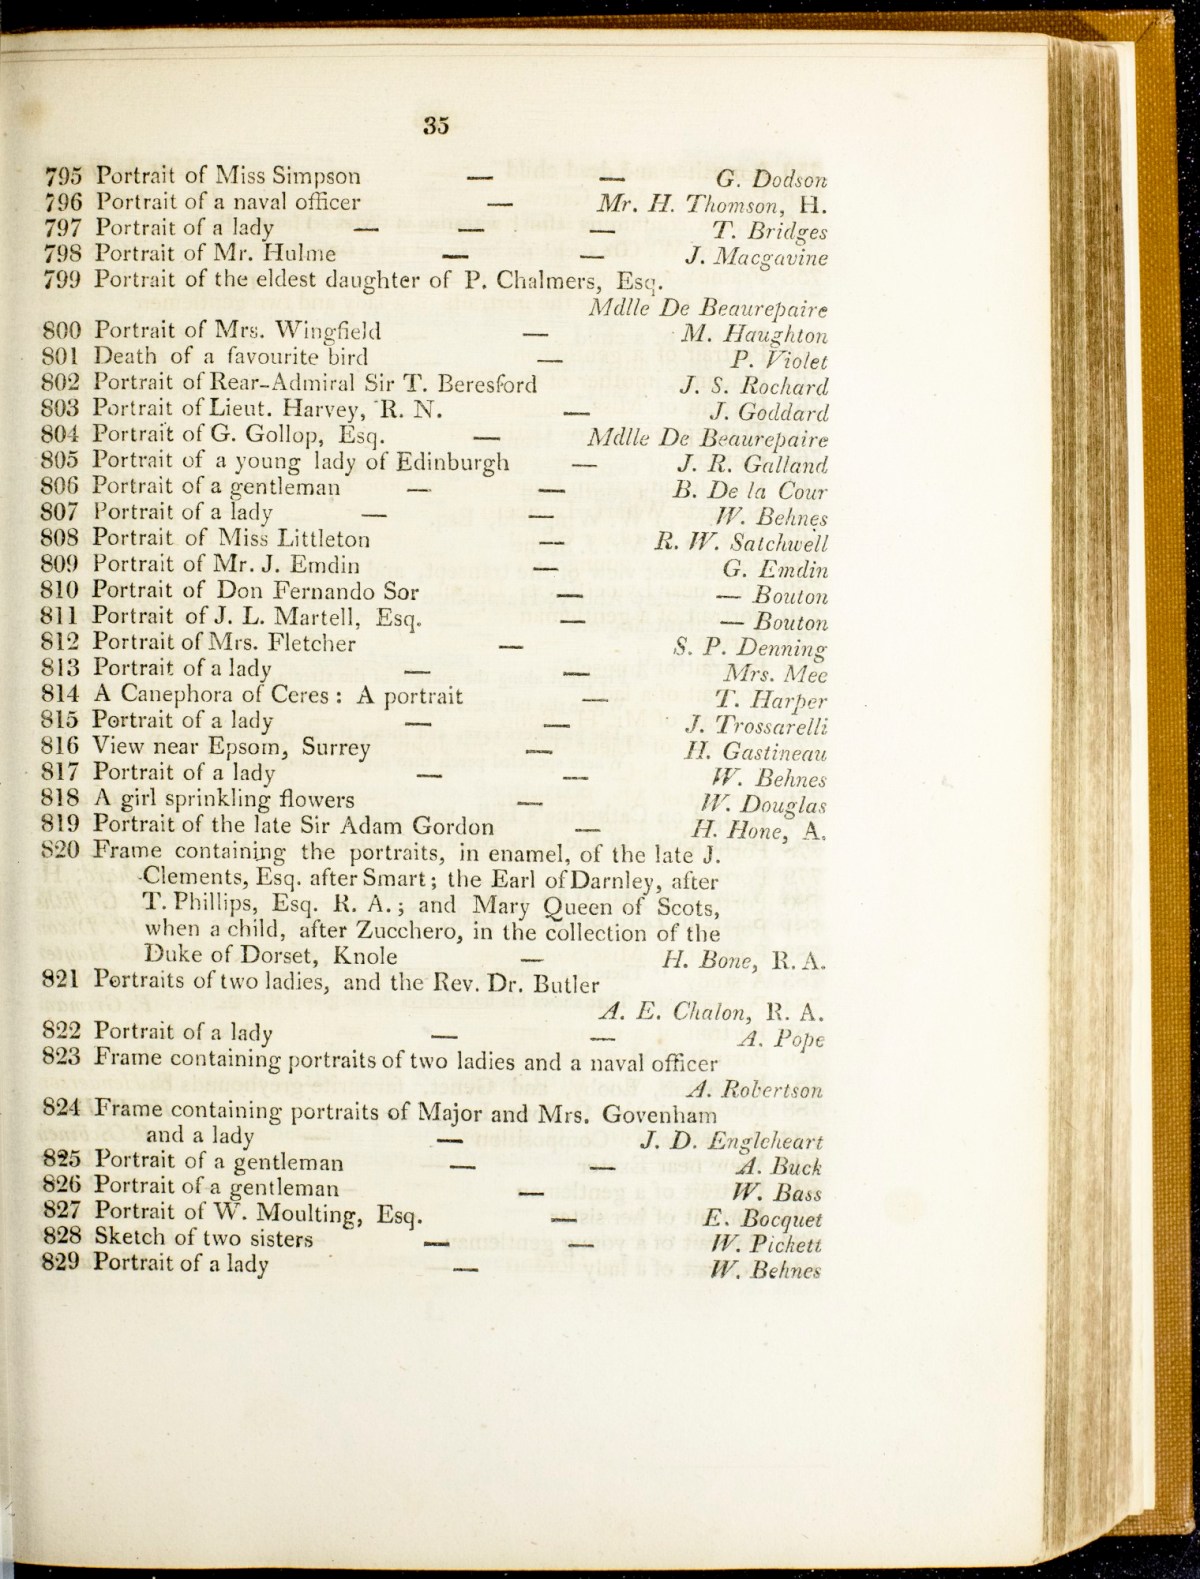 35
795 Portrait of Miss Simpson — — G. Dodson
796 Portrait of a naval officer — Mr. H. Thomson, H.
797 Portrait of a lady — — — T. Bridges
798 Portrait of Mr. Hulme — — J. Macgavine
799 Portrait of the eldest daughter of P. Chalmers, Esq.
Mdlle De Beaurepaire
800 Portrait of Mrs. Wingfield — M. Haughton
801 Death of a favourite bird — P. Violet
802 Portrait of Rear-Admiral Sir T. Beresford J. S. Rochard
803 Portrait of Lieut. Harvey, R. N. — J. Goddard
804 Portrait of G. Gollop, Esq. — Mdlle De Beaurepaire
805 Portrait of a young lady of Edinburgh — J. R. Galland
806 Portrait of a gentleman — — B. De la Cour
807 Portrait of a lady — — W. Behnes
808 Portrait of Miss Littleton — R. W. Satchwell
809 Portrait of Mr. J. Emdin — G. Emdin
810 Portrait of Don Fernando Sor — — Bouton
811 Portrait of J. L. Martell, Esq. — — Bouton
812 Portrait of Mrs. Fletcher — S. P. Denning
813 Portrait of a lady — — Mrs. Mee
814 A Canephora of Ceres : A portrait — T. Harper
815 Portrait of a lady — — J. Trossarelli
816 View near Epsom, Surrey — H. Gastineau
817 Portrait of a lady — — W. Behnes
818 A girl sprinkling flowers — W. Douglas
819 Portrait of the late Sir Adam Gordon — H. Hone, A.
820 Frame containing the portraits, in enamel, of the late J.
Clements, Esq. after Smart ; the Earl of Darnley, after
T. Phillips, Esq. R. A. ; and Mary Queen of Scots,
when a child, after Zucchero, in the collection of the
Duke of Dorset, Knole — H. Bone, R. A.
821 Portraits of two ladies, and the Rev. Dr. Butler
A. E. Chalon, R. A.
822 Portrait of a lady — — A. Pope
823 Frame containing portraits of two ladies and a naval officer
A. Robertson
824 Frame containing portraits of Major and Mrs. Govenham
and a lady — J. D. Engleheart
825 Portrait of a gentleman — — A. Buck
826 Portrait of a gentleman — W. Bass
827 Portrait of W. Moulting, Esq. — E. Bocquet
828 Sketch of two sisters — — W. Pickett
829 Portrait of a lady — W. Behnes